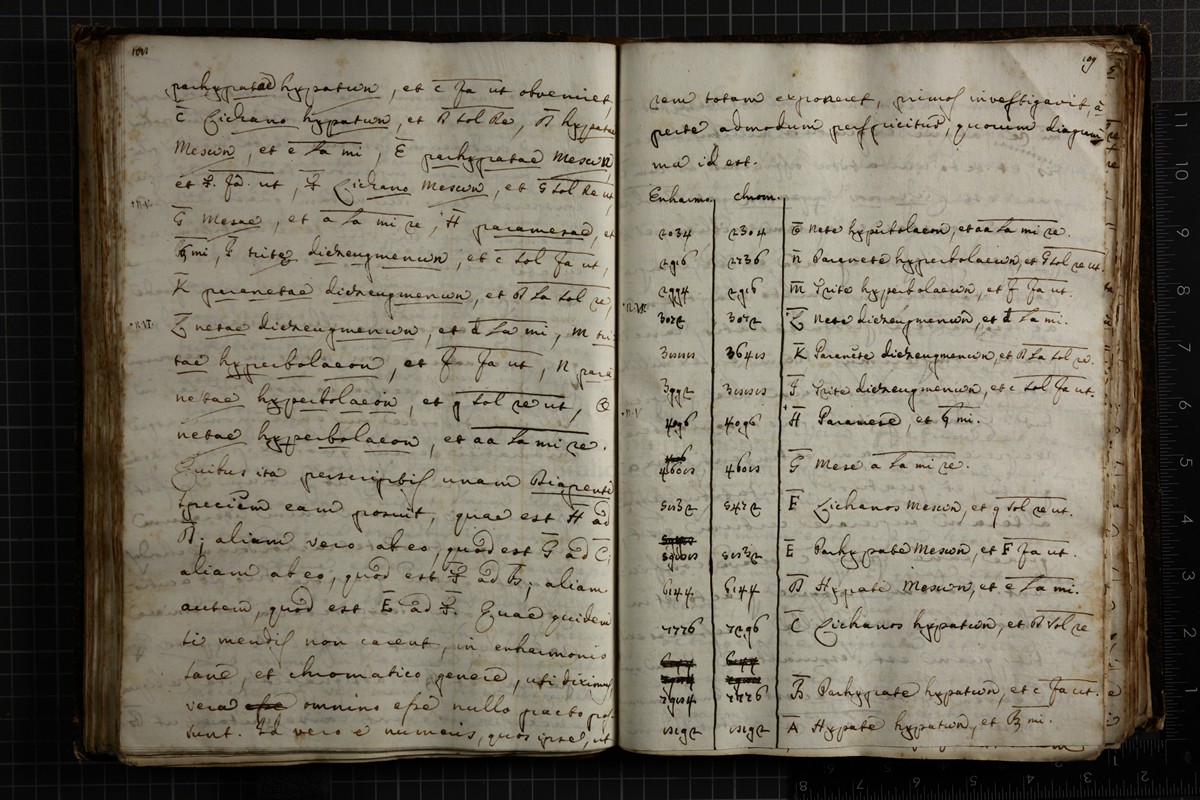 parhypatae hypatωn, et c fa ut obveniret,
C Lichano hypatωn, et D sol Re, D hypatae
Mesωn, et e la mi, E parhypatae Mesωn,
et F. fa. ut, F Lichano Mesωn, et G sol Re ut,
G Mesae, et a la mi re, H paramesae, et
♮ mi, I tritae diezeugmenωn, et c sol fa ut,
K paranetae diezeugmenωn, et D la sol re,
L netae diezeugmenωn, et d la mi, M tri-
tae hyperbolaeon, et F fa ut, N para
netae hyperbolaeon, et g sol re ut, O
netae hyperbolaeon, et aa la mi re.
Quibus ita perscriptis unam Diapente
speciem eam posuit, quae est H ad
D; aliam vero ab eo, quod est G ad C;
aliam ab eo, quod est F ad B; aliam
autem, quod est E ad
ti mendis non carent, in enharmonio
sane, et chromatico genere, uti diximus
vera omnino esse nullo pacto pos
sunt. Id vero e numeris, quos ipse, ut
109
rem totam exponeret, primos investigavit, a
perte admodum perspicitur, quorum diagram
ma id est.
Enharmo. chrom.
2304 O Nete hypebolaeon, et aa la mi re.
N Paranete hyperbolaeωn, et g sol re ut.
M Trite hyperbolaeon, et F fa ut.
3072 3072 L Nete diezeugmenωn, et d la mi.
K Paranete diezeugmenωn, et D la sol re.
I Trite diezeugmenωn, et c sol fa ut.
4096 4096 H Paramese, et ♮ mi.
G Mese a la mi re.
F Lichanos Mesωn, et g sol re ut.
E Parhypate Mesωn, et F fa ut.
6144 6144 D Hypate Mesωn, et e la mi.
C Lichanos hypatωn, et D sol re
B Parhypate hypatωn, et c fa ut.
A Hypate hypatωn, et B mi.